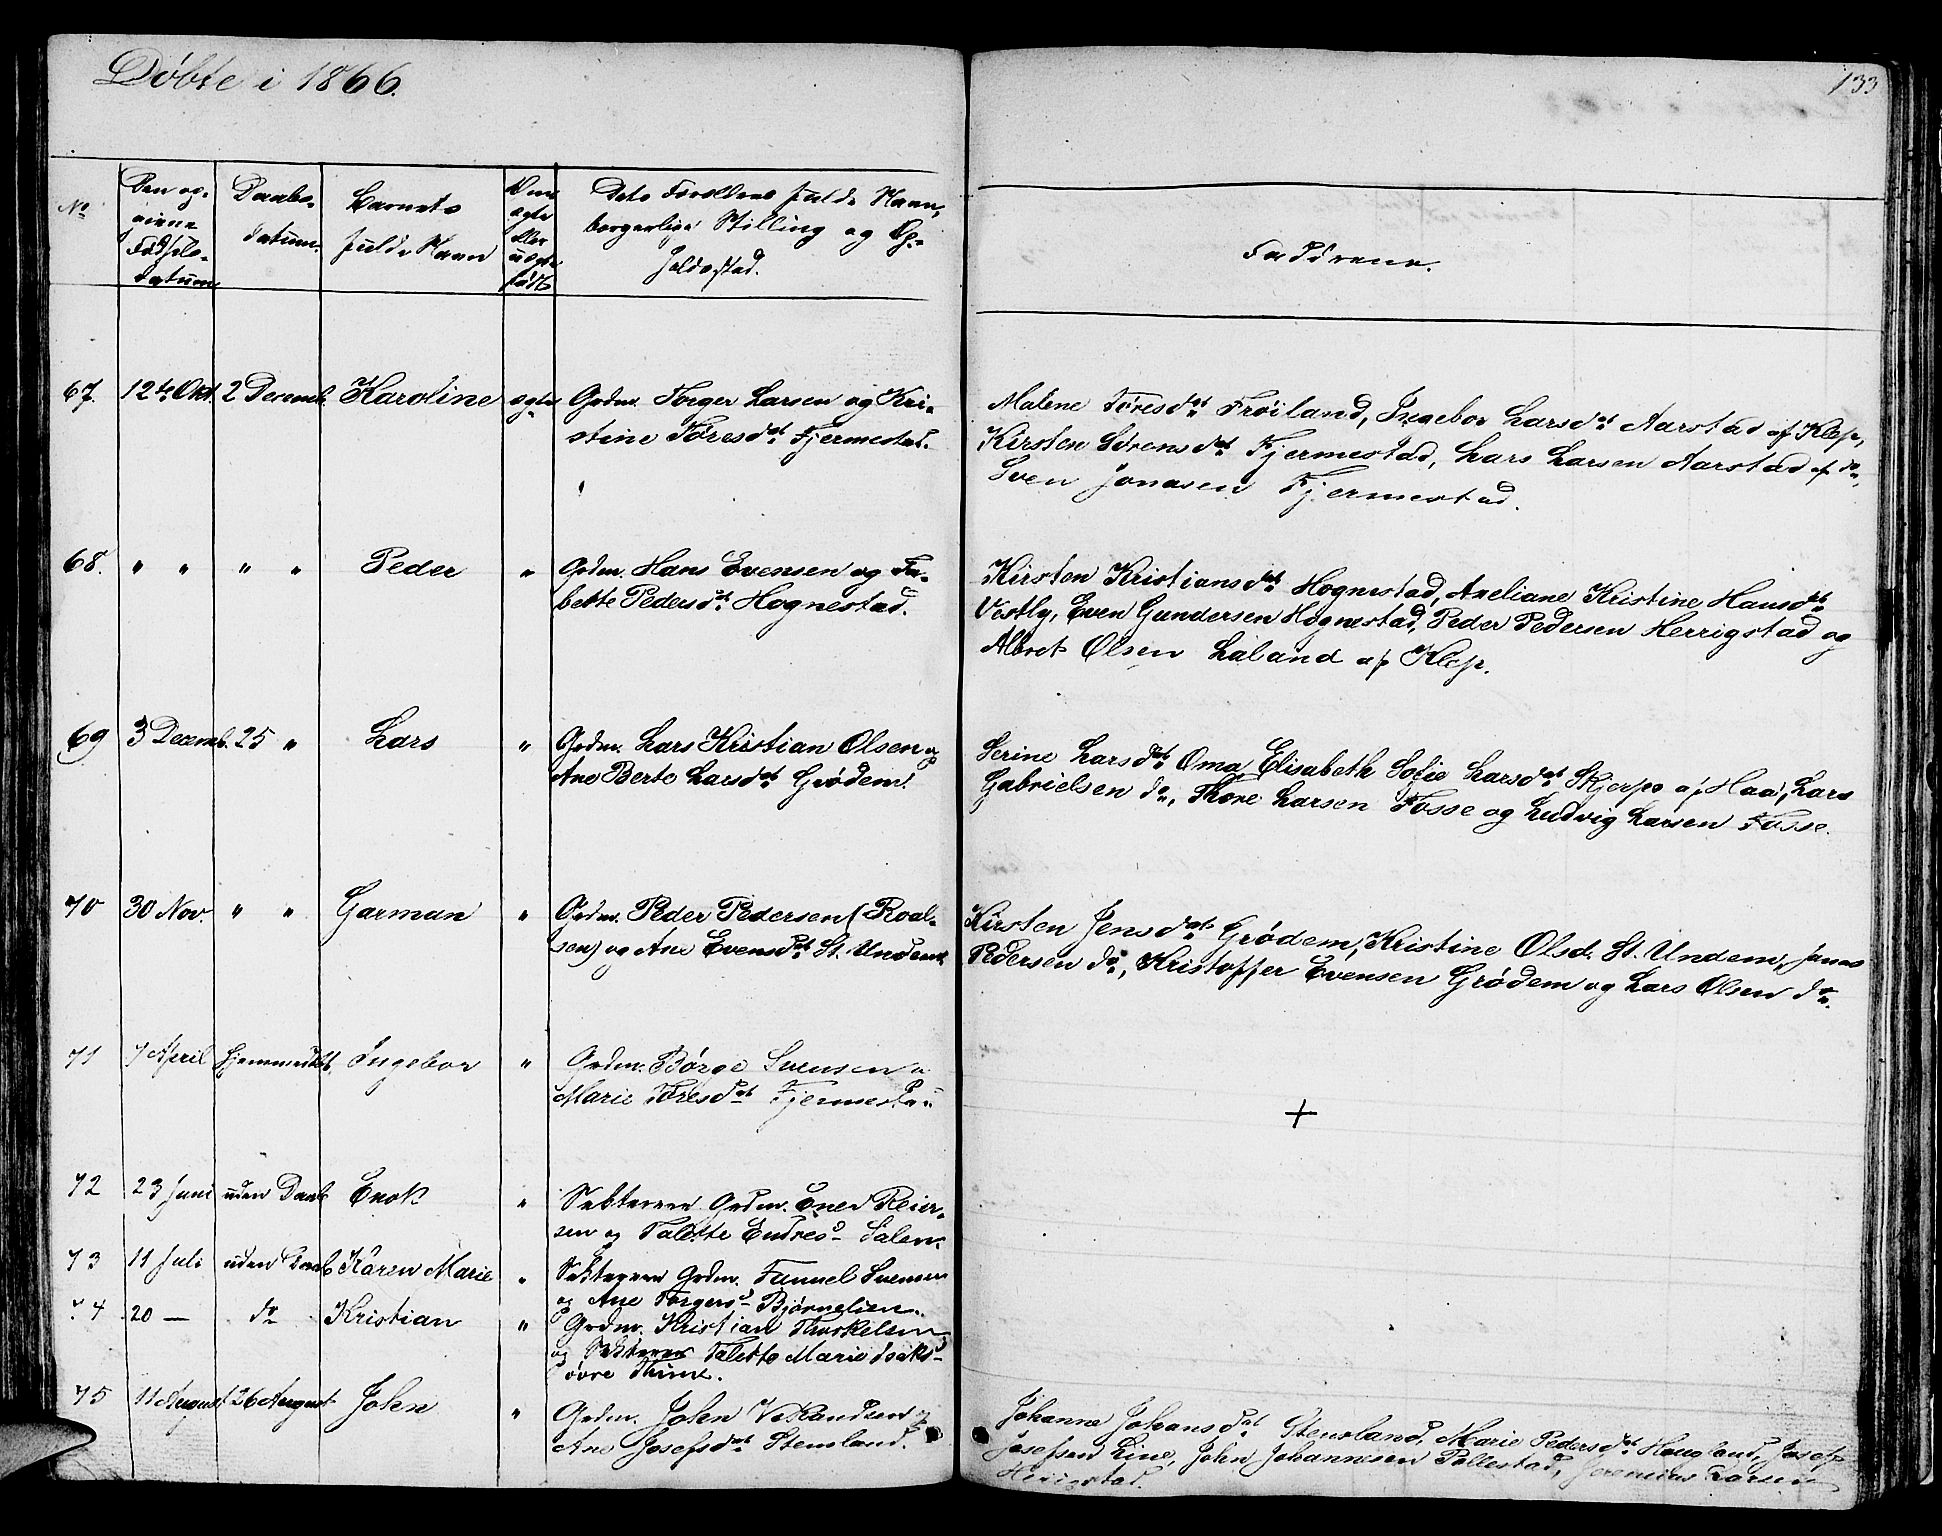 Døbte i 1866.
133
No
Den og
Fødsels-
datum
Daabs-
datum.
Barnets
fulde Navn
ægte
eller
uægte
født
Dets Forældres fulde Navn,
borgerlige Stilling og Op-
holdssted.
Faddrene.
67. 12te Okt. 2 Decemb. Karoline ægte Grdm. Torger Larsen og Kri-
stine Toresdat. Fjermestad.
Malene Toresdat. Frøiland, Ingebor Larsdat. Aarstad af Klep,
Kirsten Sørensdat. Fjermestad, Lars Larsen Aarstad af do,
Sven Jonasen Fjermestad.
68. " " " " Peder " Grdm. Hans Evensen og Ta-
bette Pedersdat. Hognestad.
Kirsten Kristiansdat. Hognestad, Aneliane Kristine Hansdat.
Vestly, Even Gundersen Hognestad, Peder Pedersen Herrigstad og
Albret Olsen Laland af Klep.
69 3 Decemb. 25 " Lars " Grdm. Lars Kristian Olsen og
Ane Berte Larsdat. Grødem.
Serine Larsdat. Oma, Elisabeth Sofie Larsdat. Skjerpe af Haa, Lars
Gabrielsen do, Thore Larsen Fosse og Ludvig Larsen Fosse.
70 30 Nov. " " Garman " Grdm. Peder Pedersen (Roal-
sen) og Ane Evensdat. St. Undem.
Kirsten Jensdat. Grødem, Kristine Olsd. St. Undem, Jonas
Pedersen do, Kristoffer Evensen Grødem og Lars Olsen do.
71 7 April hjemmedøbt. Ingebor " Grdm. Børge Svensen o
Marie Toresdat. Fjermestad
+
72 23 Juni uden Daab Enok " Sekterere Grdm. Ener Reier-
sen og Talette Endresd. Salen.
73 11 Juli uden Daab Karen Marie " Sekterere Grdm. Samuel Svensen
og Ane Torgersd. Bjørnelien.
74 20 — do Kristian " Grdm. Kristian Thorkelsen
og Sekterer Talette Marie Isaksd.
øvre Thime.
75 11 August 26 August John " Grdm. John Vikandsen og
Ane Josefsdat. Stensland.
Johanne Johansdat. Stensland, Marie Pedersdat. Haugland, Josef
Josefsen Line, John Johannesen Pollestad, Jeremias Larsen
Herigstad.